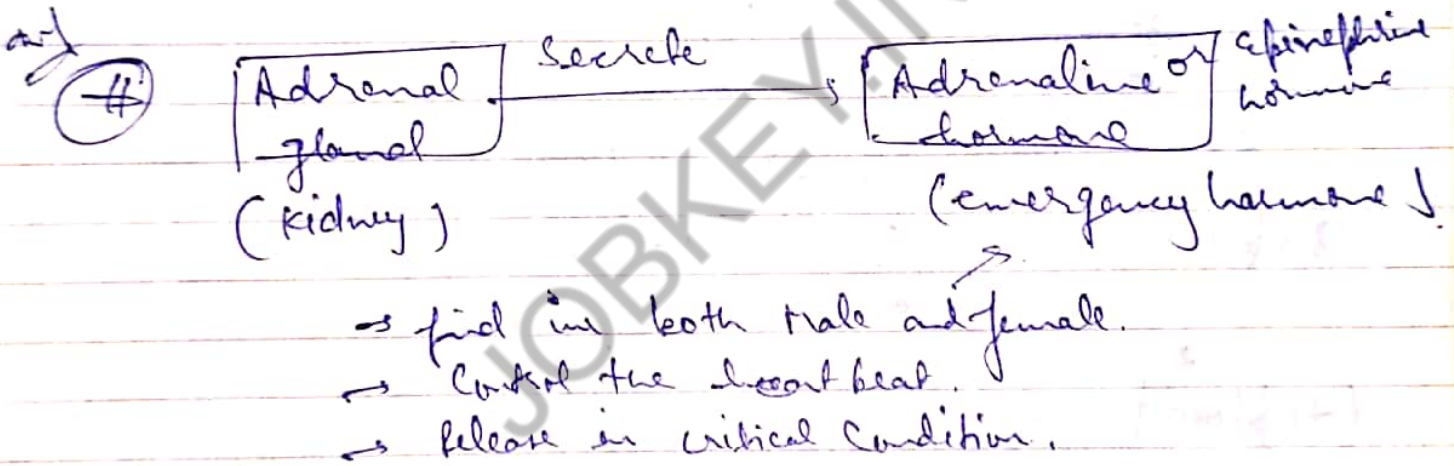 #
Adrenal Secrete Adrenaline or epinephrine
gland hormone hormone
(kidney) (emergency hormone)
→ find in both Male and female.
→ Control the heart beat.
→ Release in critical Condition.
JOBKEY.IN